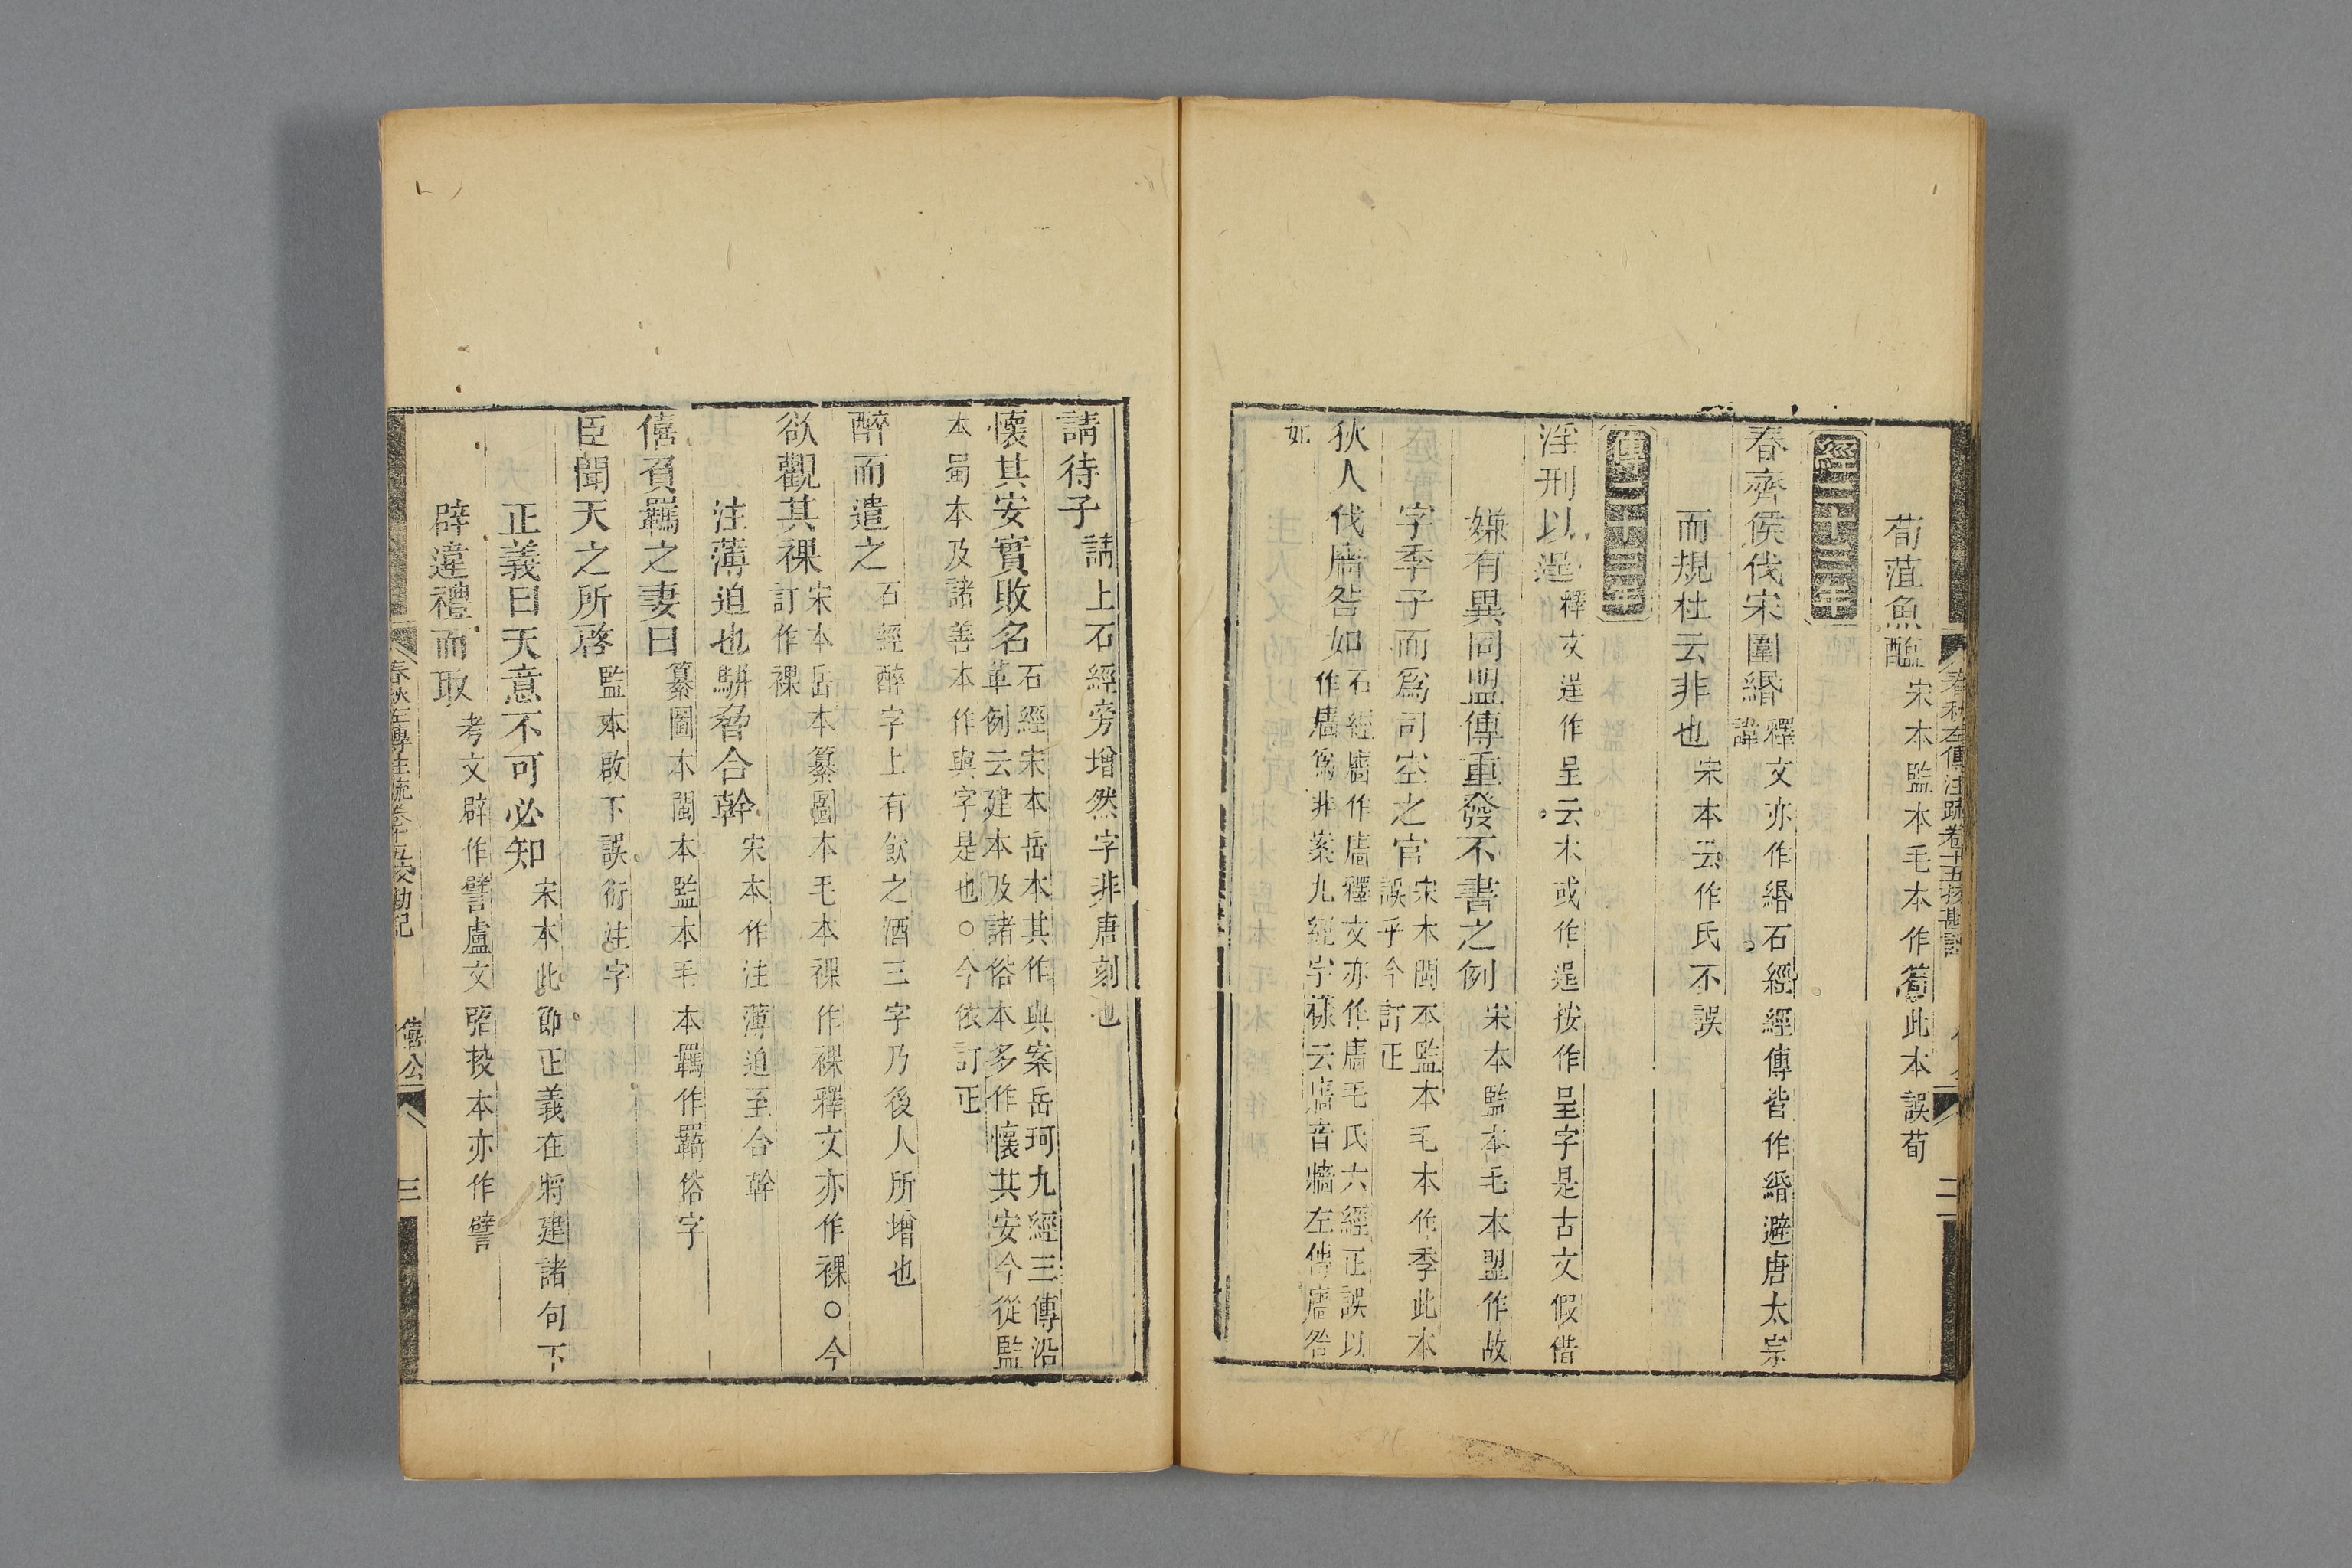 荀菹魚醢宋本監本毛本作蒀此本誤荀
經二十三年
春齊侯伐宋圍緡釋文亦作緡石經經傳皆作緍避唐太宗
諱
而規杜云非也宋本云作氏不誤
傳二十三年
淫刑以逞釋文逞作呈云本或作逞按作呈字是古文假借
嫌有異同盟傳重發不書之例宋本監本毛本盟作故
字季子而爲司空之官宋本閩本監本毛本作季此本
誤乎今訂正
狄人伐廧咎如石經廧作廧釋文亦作廧毛氏六經正誤以
作廧爲非案九經字樣云廧音牆左傳廧咎
如
請待子請上石經旁增然字非唐刻也
懷其安實敗名石經宋本岳本其作與案岳珂九經三傳沿
革例云建本及諸俗本多作懷其安今從監
本蜀本及諸善本作與字是也○今依訂正
醉而遣之石經醉字上有飲之酒三字乃後人所增也
欲觀其裸宋本岳本纂圖本毛本裸作裸釋文亦作裸○今
訂作裸
注薄迫也駢脅合幹宋本作注薄迫至合幹
僖負羈之妻曰纂圖本閩本監本毛本羈作羇俗字
臣聞天之所啓監本啟下誤衍注字
正義曰天意不可必知宋本此節正義在將建諸句下
辟違禮而取考文辟作譬盧文弨挍本亦作譬
春秋左傳注疏卷十五挍勘記
僖公
三
春秋左傳注疏卷十五挍勘記
二